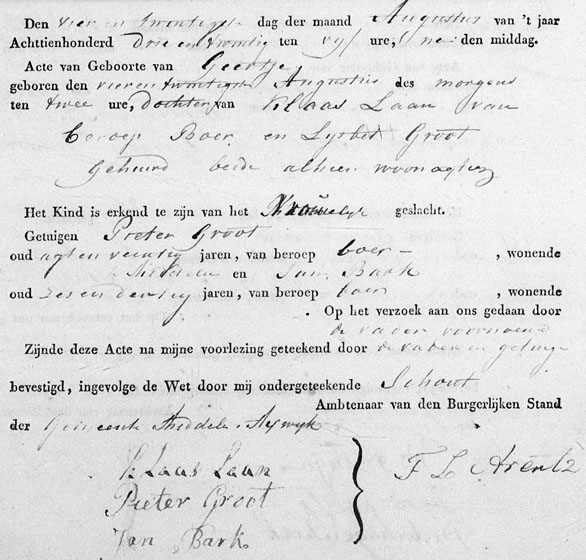 Den vier en twintigste dag der maand Augustus van 't jaar
Achttienhonderd drie en twintig ten vijf ure, na den middag.
Acte van Geboorte van Geertje
geboren den vier en twintigste Augustus des morgens
ten twee ure, dochter van Klaas Laan van
beroep Boer en Lijsbet Groot
Gehuwd beide alhier woonagtig
Het Kind is erkend te zijn van het geslacht.
Getuigen Pieter Groot
oud agt en veertig jaren, van beroep boer , wonende
Middelie en Jan Bark
oud zes en dertig jaren, van beroep boer , wonende
. Op het verzoek aan ons gedaan door
de vader voornoemd
Zijnde deze Acte na mijne voorlezing geteekend door de vader en getuige
bevestigd, ingevolge de Wet door mij ondergeteekende Schout
Ambtenaar van den Burgerlijken Stand
der Gemeente Middelie
Klaas Laan
Pieter Groot
Jan Bark
F L Arentz